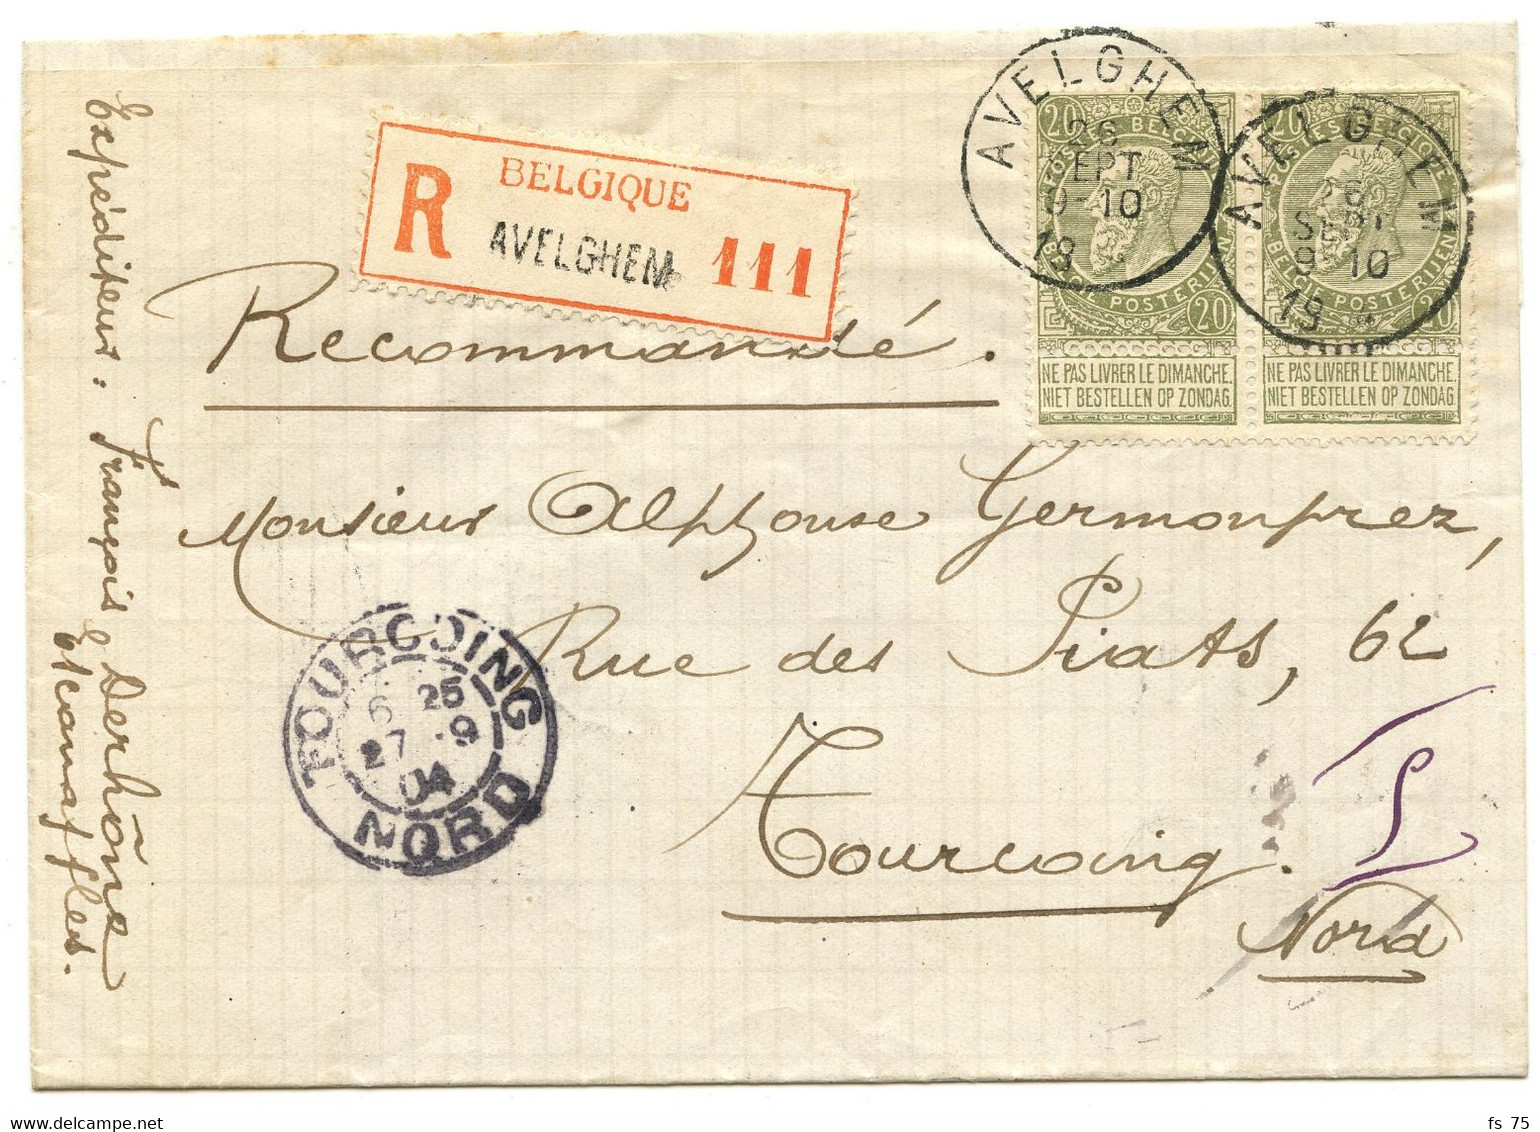 R
BELGIQUE
AVELGHEM
111
AVELGHEM
26
SEPT
9-10
19
AVELGHEM
26
SEPT
9-10
19
20 20
POSTES BELGIQUE
BELGIE POSTERIJEN
20
NE PAS LIVRER LE DIMANCHE.
NIET BESTELLEN OP ZONDAG
20
POSTES BELGIQUE
BELGIE POSTERIJEN
20
NE PAS LIVRER LE DIMANCHE.
NIET BESTELLEN OP ZONDAG
Recommandé.
Monsieur Alphonse Germonprez,
Rue des Piats, 62
Tourcoing.
Nord
TOURCOING
6 25
27 -9
04
NORD
Expéditeur: François
Escanaffles.
fs 75